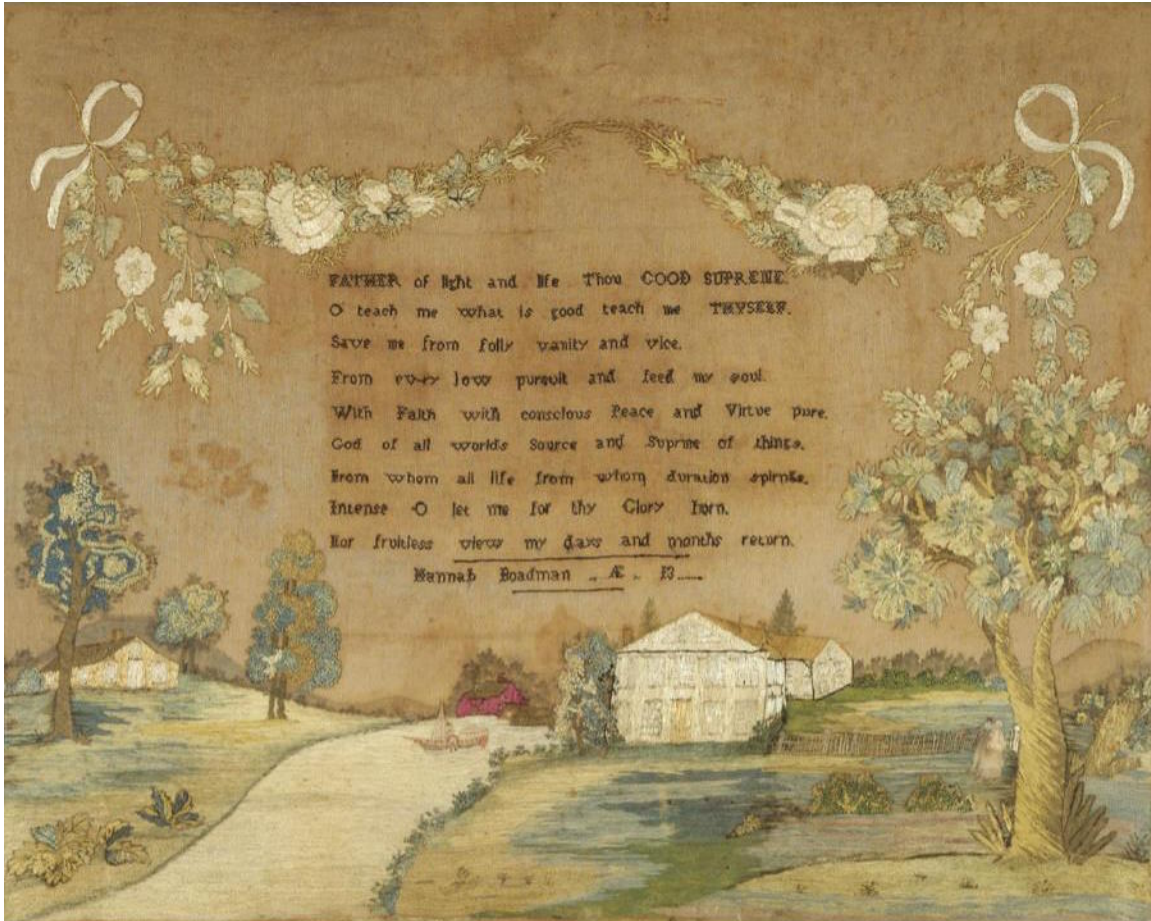 FATHER of light and life Thou GOOD SUPREME.
O teach me what is good teach me THYSELF.
Save me from folly vanity and vice.
From every low pursuit and feed my soul.
With Faith with conscious Peace and Virtue pure.
God of all worlds Source and Suprme of things.
From whom all life from whom duration spirngs.
Intense O let me for thy Glory
Nor fruitless view my days and months return.
Hannah Boadman .. Æ .. 13